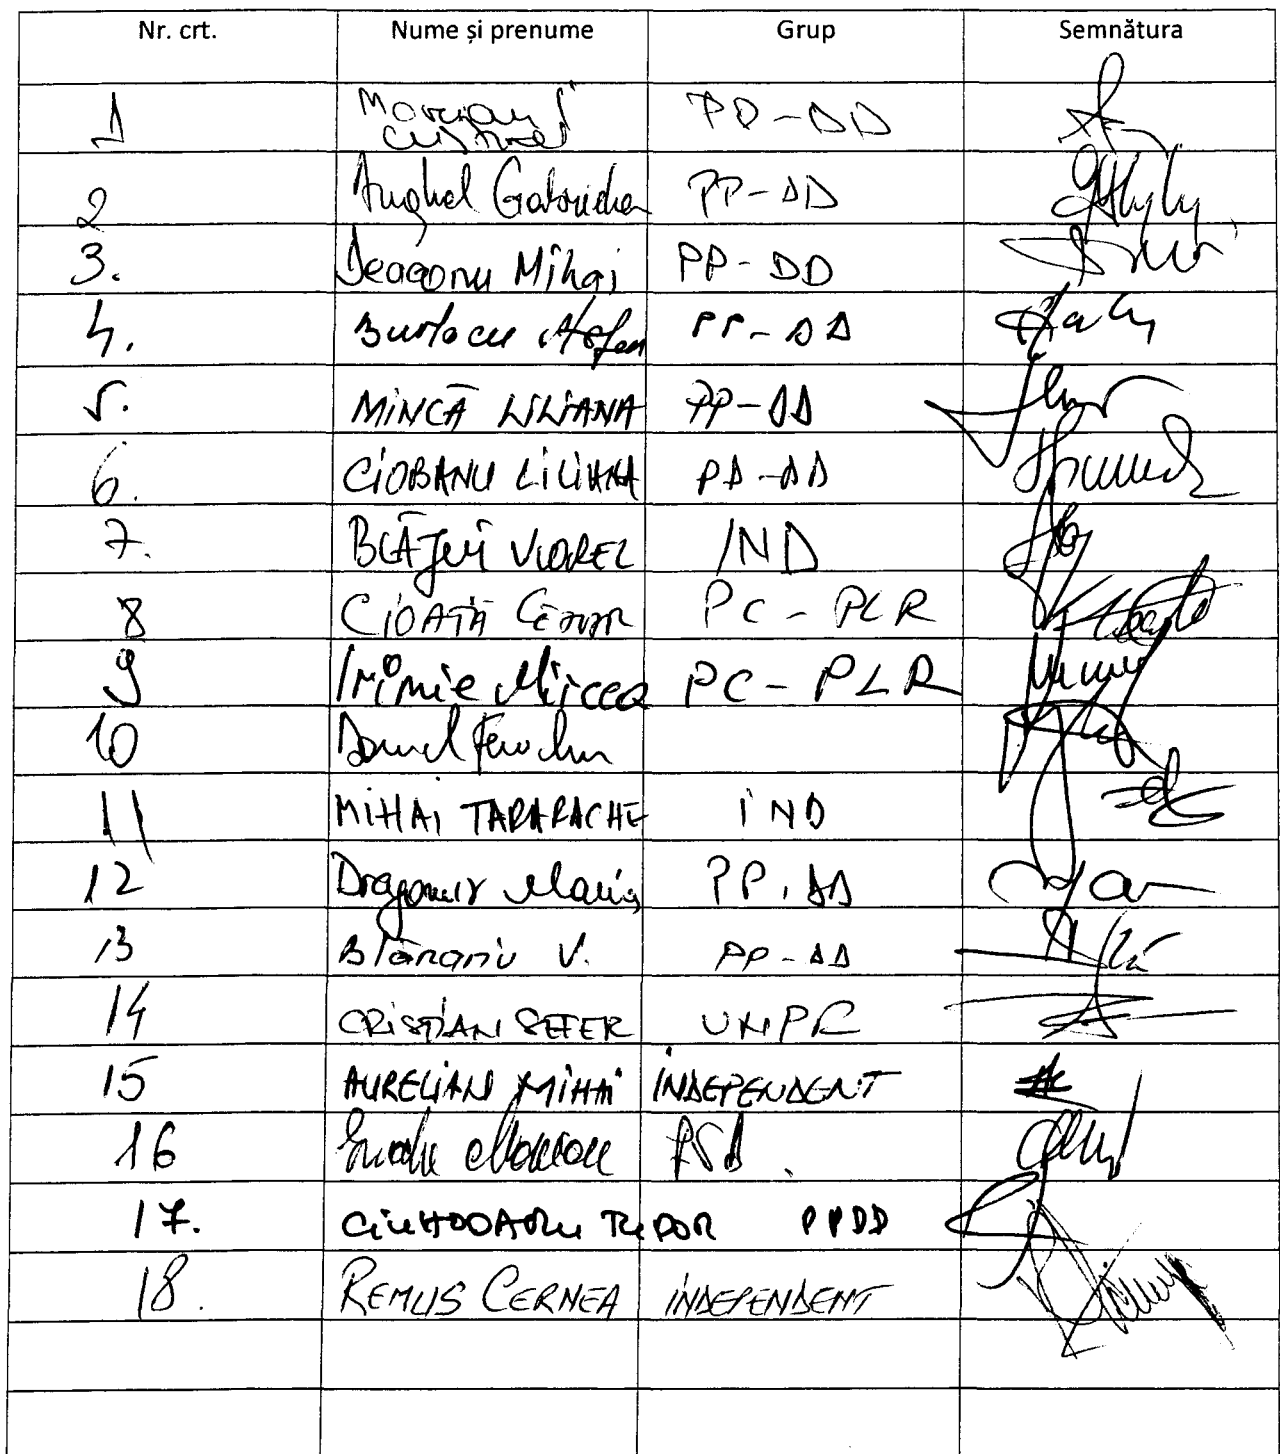 Nr. crt. Nume și prenume Grup Semnătura
1 PP-DD
2 Anghel Gabriela PP-DD
3. Deaconu Mihai PP-DD
4. Burlacu Ștefan PP-DD
5. MINCĂ LILIANA PP-DD
6. CIOBANU LILIANA PP-DD
7. BLĂJUȚ VIOREL IND
8 CIOATĂ CEZAR PC-PLR
9 Irimie Mircea PC-PLR
10
11 MIHAI TARARACHE IND
12 Dragomir Maria PP.DD
13 Blănariu V. PP-DD
14 CRISTIAN SEFER UNPR
15 AURELIAN MIHAI INDEPENDENT
16 PSD
17. CIUHODARU TUDOR PPDD
18. REMUS CERNEA INDEPENDENT